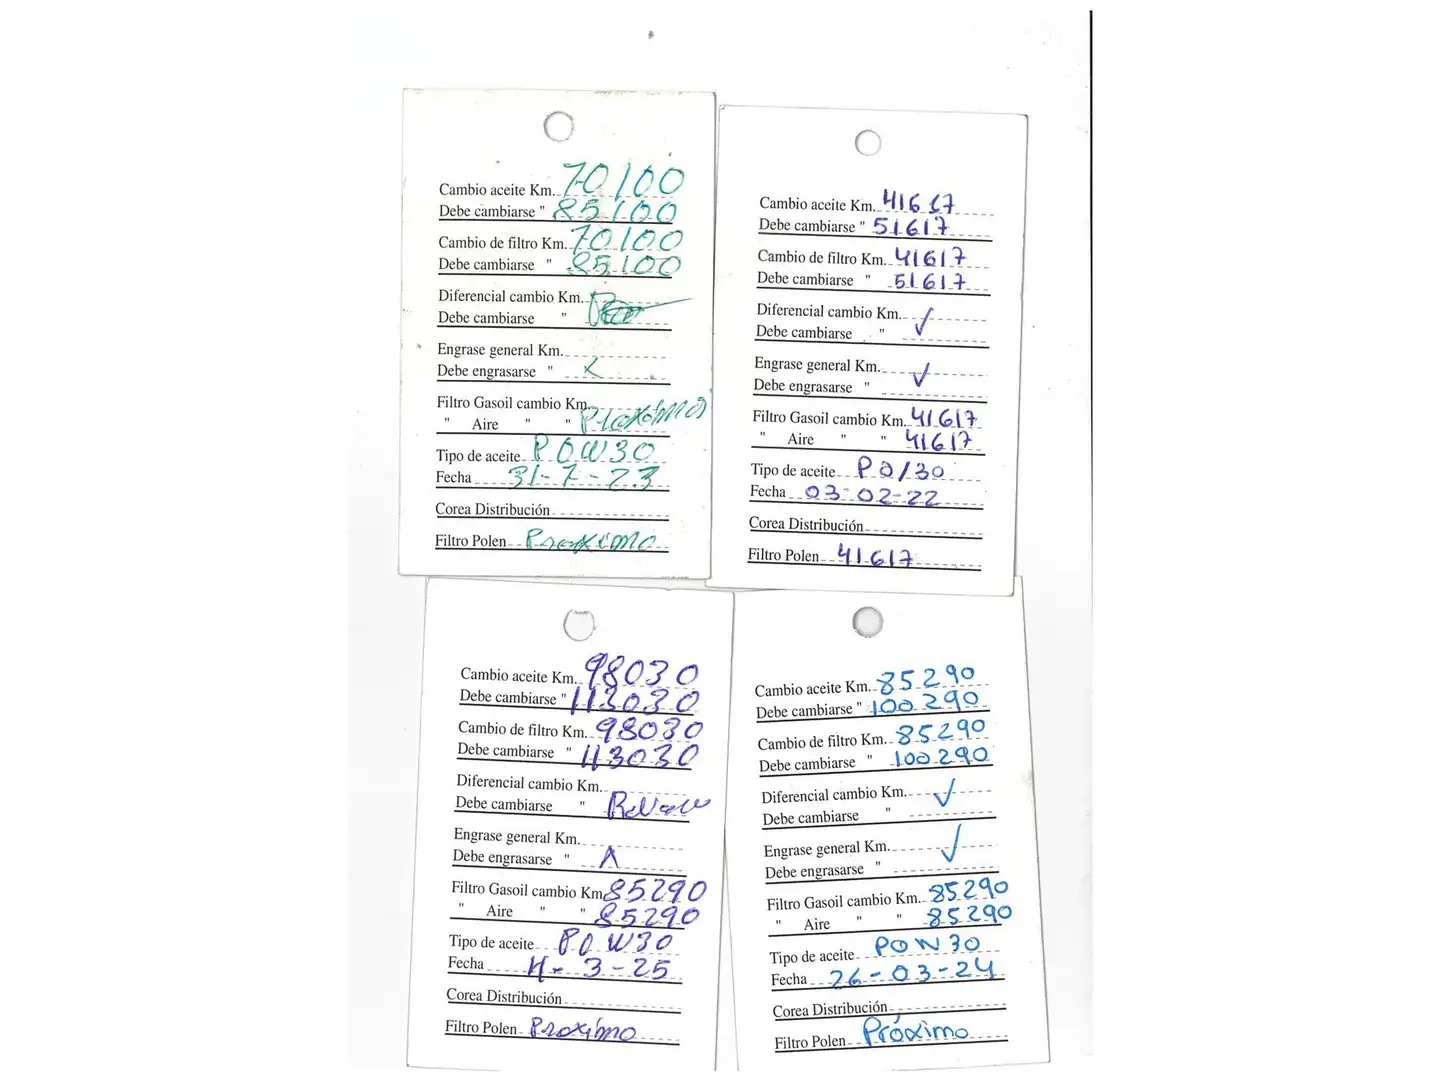 Cambio aceite Km. 70100
Debe cambiarse " 85100
Cambio de filtro Km. 70100
Debe cambiarse " 85100
Diferencial cambio Km.
Debe cambiarse "
Engrase general Km.
Debe engrasarse "
Filtro Gasoil cambio Km. Proximo
" Aire " "
Tipo de aceite POW30
Fecha 31-7-23
Corea Distribución
Filtro Polen Proximo
Cambio aceite Km. 41617
Debe cambiarse " 51617
Cambio de filtro Km. 41617
Debe cambiarse " 51617
Diferencial cambio Km. ✓
Debe cambiarse "
Engrase general Km. ✓
Debe engrasarse "
Filtro Gasoil cambio Km. 41617
" Aire " " 41617
Tipo de aceite PO/30
Fecha 03-02-22
Corea Distribución
Filtro Polen 41617
Cambio aceite Km. 98030
Debe cambiarse " 113030
Cambio de filtro Km. 98030
Debe cambiarse " 113030
Diferencial cambio Km.
Debe cambiarse "
Engrase general Km.
Debe engrasarse "
Filtro Gasoil cambio Km 85290
" Aire " " 85290
Tipo de aceite POW30
Fecha 3-25
Corea Distribución
Filtro Polen Proximo
Cambio aceite Km. 85290
Debe cambiarse " 100290
Cambio de filtro Km. 85290
Debe cambiarse " 100290
Diferencial cambio Km. ✓
Debe cambiarse "
Engrase general Km. ✓
Debe engrasarse "
Filtro Gasoil cambio Km. 85290
" Aire " " 85290
Tipo de aceite POW30
Fecha 26-03-24
Corea Distribución
Filtro Polen Próximo